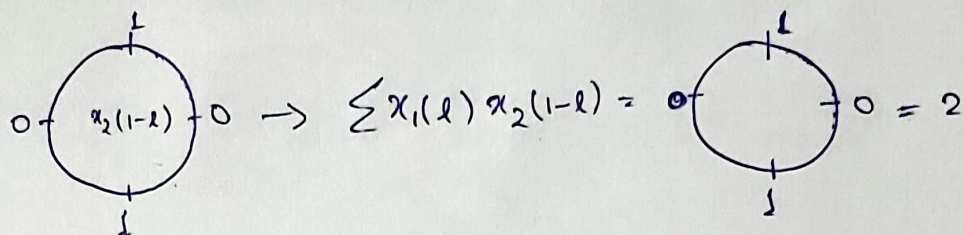 1
0 x₂(1-l) 0 → ∑ x₁(l) x₂(1-l) = 0 0 = 2
1 1
1